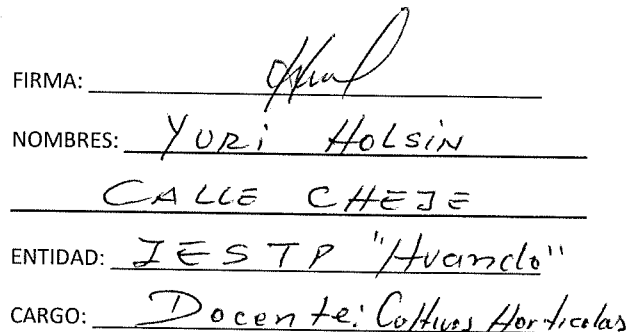 FIRMA:
NOMBRES: YURI HOLSIN
CALLE CHEJE
ENTIDAD: IESTP "Huando"
CARGO: Docente: Cultivos Hortícolas